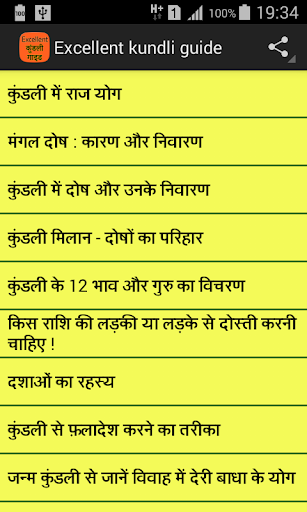 H+ 1 19:34
Excellent कुंडली गाइड
Excellent kundli guide
कुंडली में राज योग
मंगल दोष : कारण और निवारण
कुंडली में दोष और उनके निवारण
कुंडली मिलान - दोषों का परिहार
कुंडली के 12 भाव और गुरु का विचरण
किस राशि की लड़की या लड़के से दोस्ती करनी
चाहिए !
दशाओं का रहस्य
कुंडली से फ़लादेश करने का तरीका
जन्म कुंडली से जानें विवाह में देरी बाधा के योग